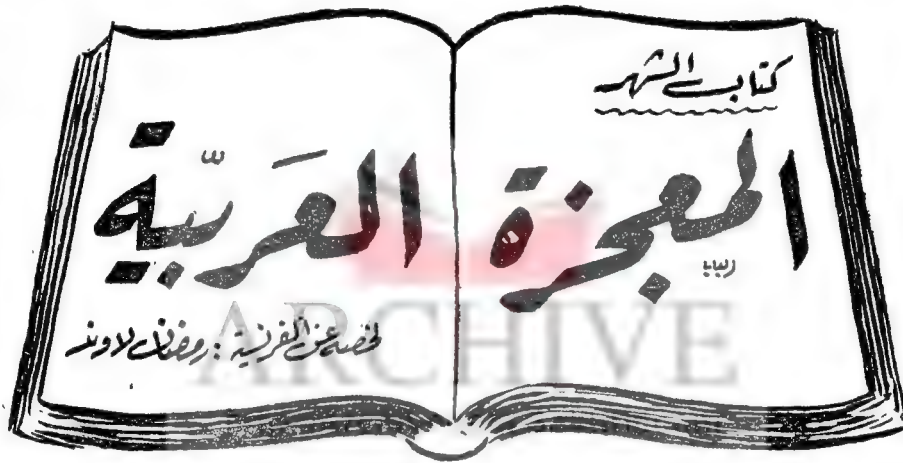 كتاب الشهر
المعجزة العربيّة
لخصه عن الفرنسية : رمضان لاوند
ARCHIVE